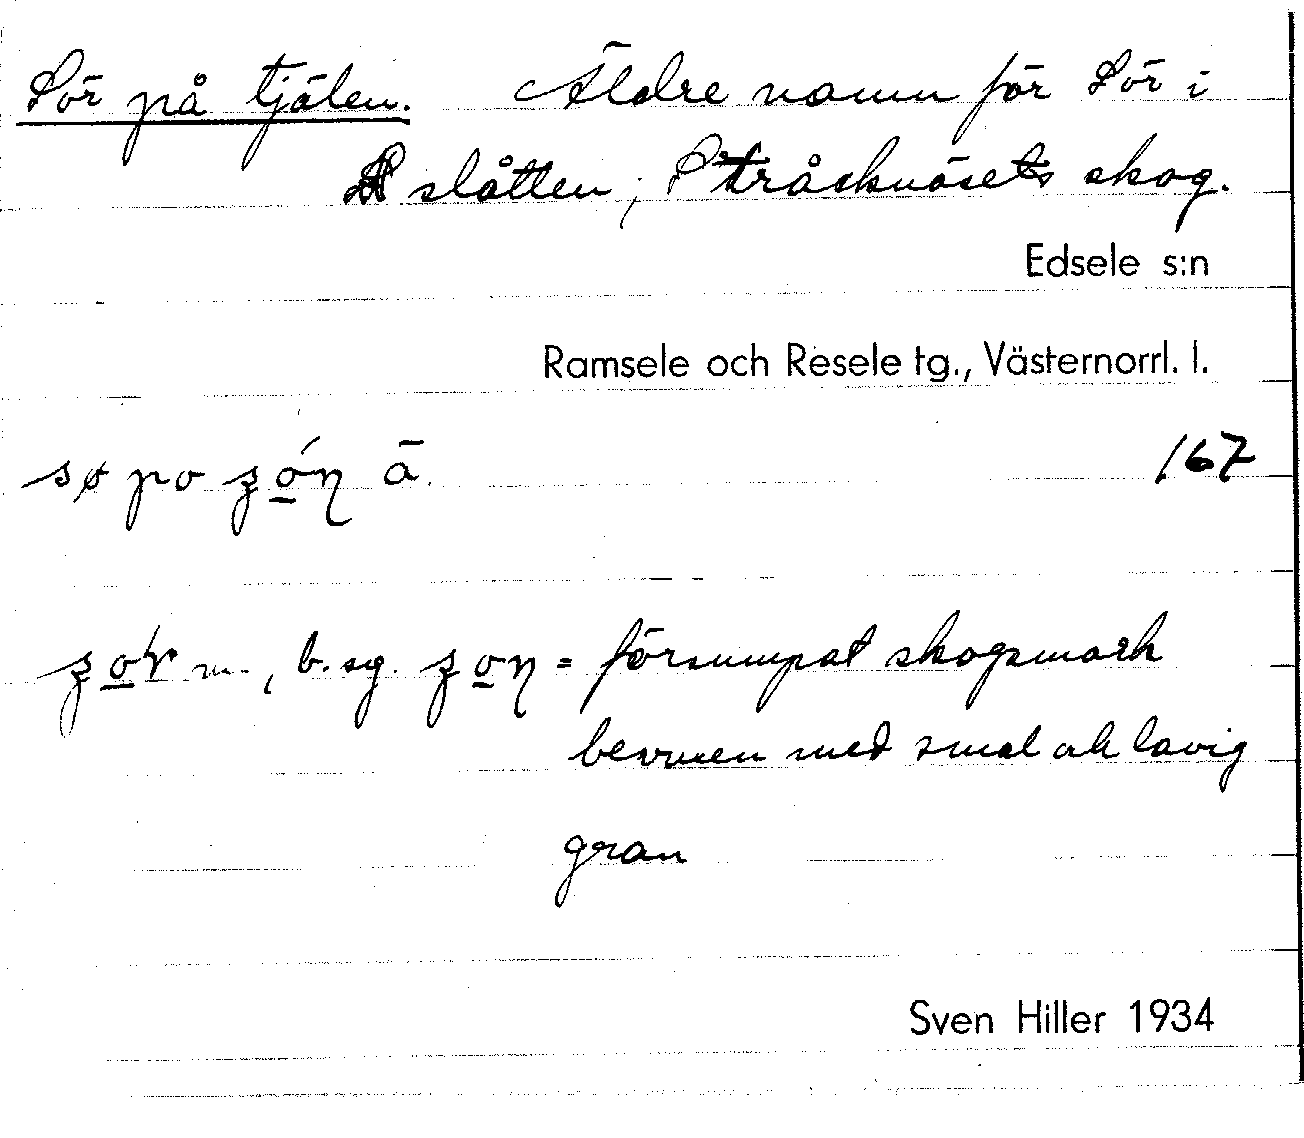 Sör på tjälen. Äldre namn för Sör i
slåtten, Stråcknäsets skog.
Edsele s:n
Ramsele och Resele tg., Västernorrl. l.
sø po ʒo̲n ā. 167
m., b. sg. = försumpat skogsmark
bevuxen med smal och lavig
gran
Sven Hiller 1934